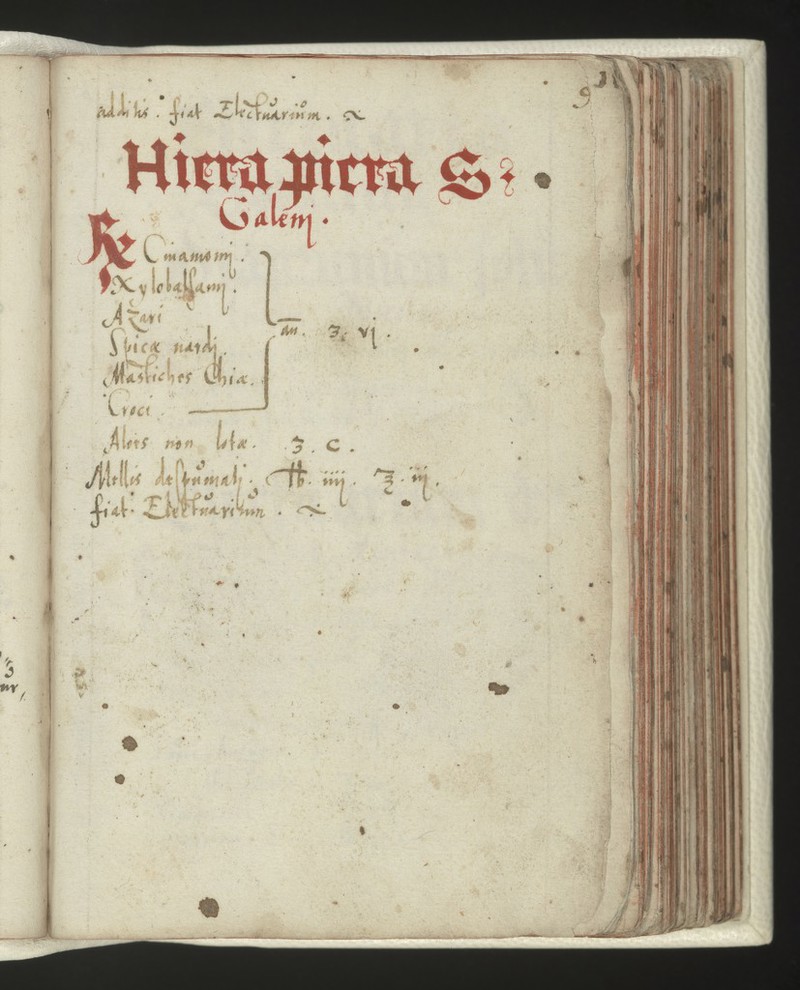 9
additis. fiat Electuarium.
Hiera picra S:
Galenj.
℞ Cinamomj.
Xylobalsamj.
Azari
Spicæ nardj.
Mastiches Chiæ.
Croci.
an. ʒ. vj.
Aloes non lotæ. ʒ. C.
Mellis despumatj. ℔. iiij. ℥. iij.
fiat Electuarium.